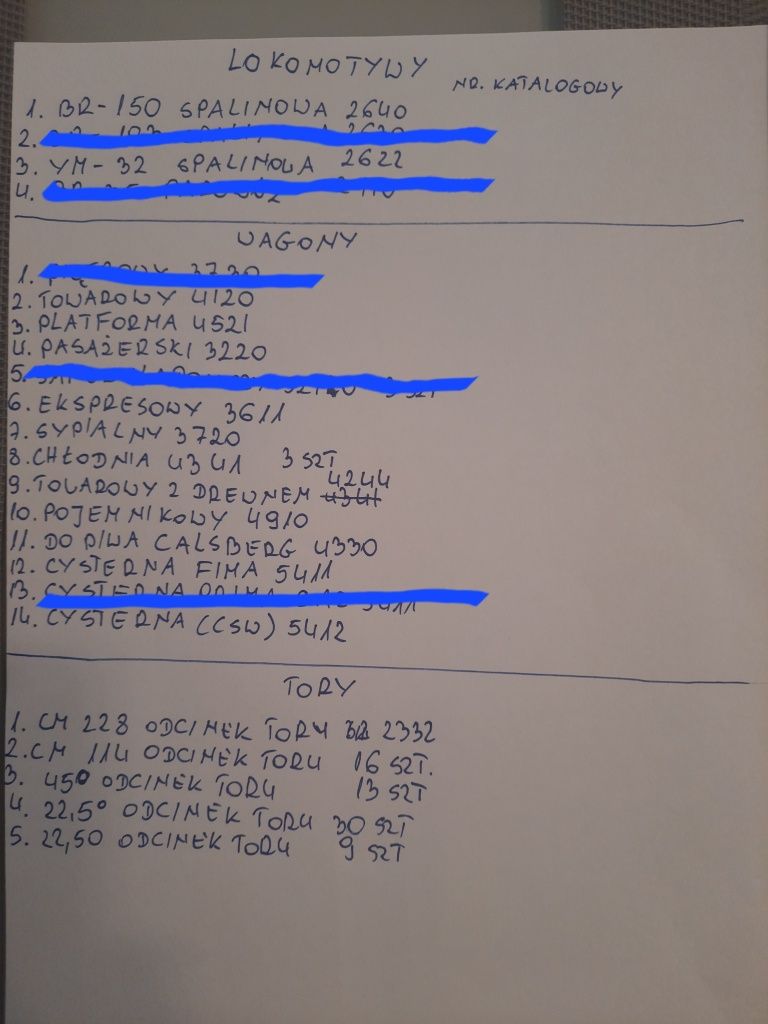 LOKOMOTYWY
NR. KATALOGOWY
1. BR-150 SPALINOWA 2640
2.
3. YM-32 SPALINOWA 2622
4.
WAGONY
1. 3730
2. TOWAROWY 4120
3. PLATFORMA 4521
4. PASAŻERSKI 3220
5.
6. EKSPRESOWY 3611
7. SYPIALNY 3720
8. CHŁODNIA 4341 3 SZT
9. TOWAROWY Z DREWNEM 4341 4244
10. POJEMNIKOWY 4910
11. DO PIWA CALSBERG 4330
12. CYSTERNA FINA 5411
13. CYSTERNA 5411
14. CYSTERNA (CSW) 5412
TORY
1. CM 228 ODCINEK TORU 2332
2. CM 114 ODCINEK TORU 16 SZT.
3. 45° ODCINEK TORU 13 SZT
4. 22,5° ODCINEK TORU 30 SZT
5. 22,50 ODCINEK TORU 9 SZT